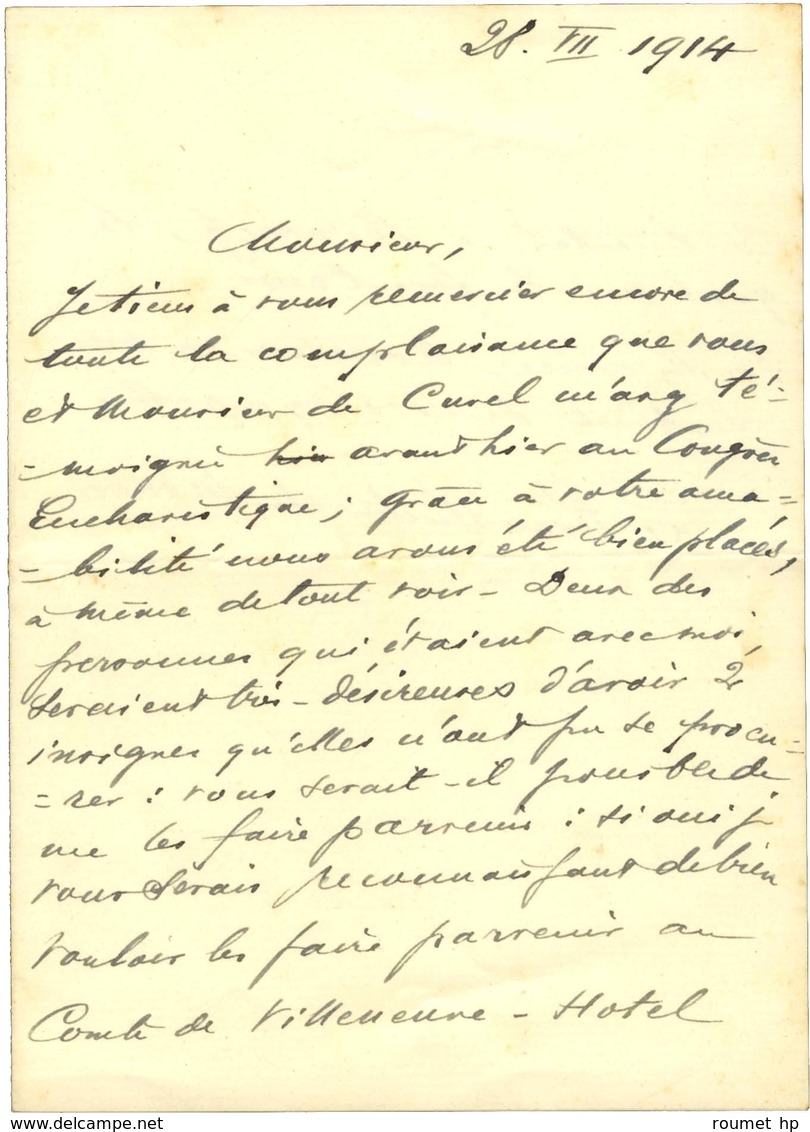 28. VII 1914
Monsieur,
Je tiens à vous remercier encore de
toute la complaisance que vous
et Monsieur de Curel m'avez té-
-moignée hier avant hier au Congrès
Eucharistique ; grâce à votre ama-
-bilité nous avons été bien placés,
à même de tout voir - Deux des
personnes qui étaient avec moi,
seraient très-désireuses d'avoir 2
insignes qu'elles n'ont pu se procu-
-rer : vous serait-il possible de
me les faire parvenir : si oui je
vous serais reconnaissant de bien
vouloir les faire parvenir au
Comte de Villeneuve - Hotel
roumet hp